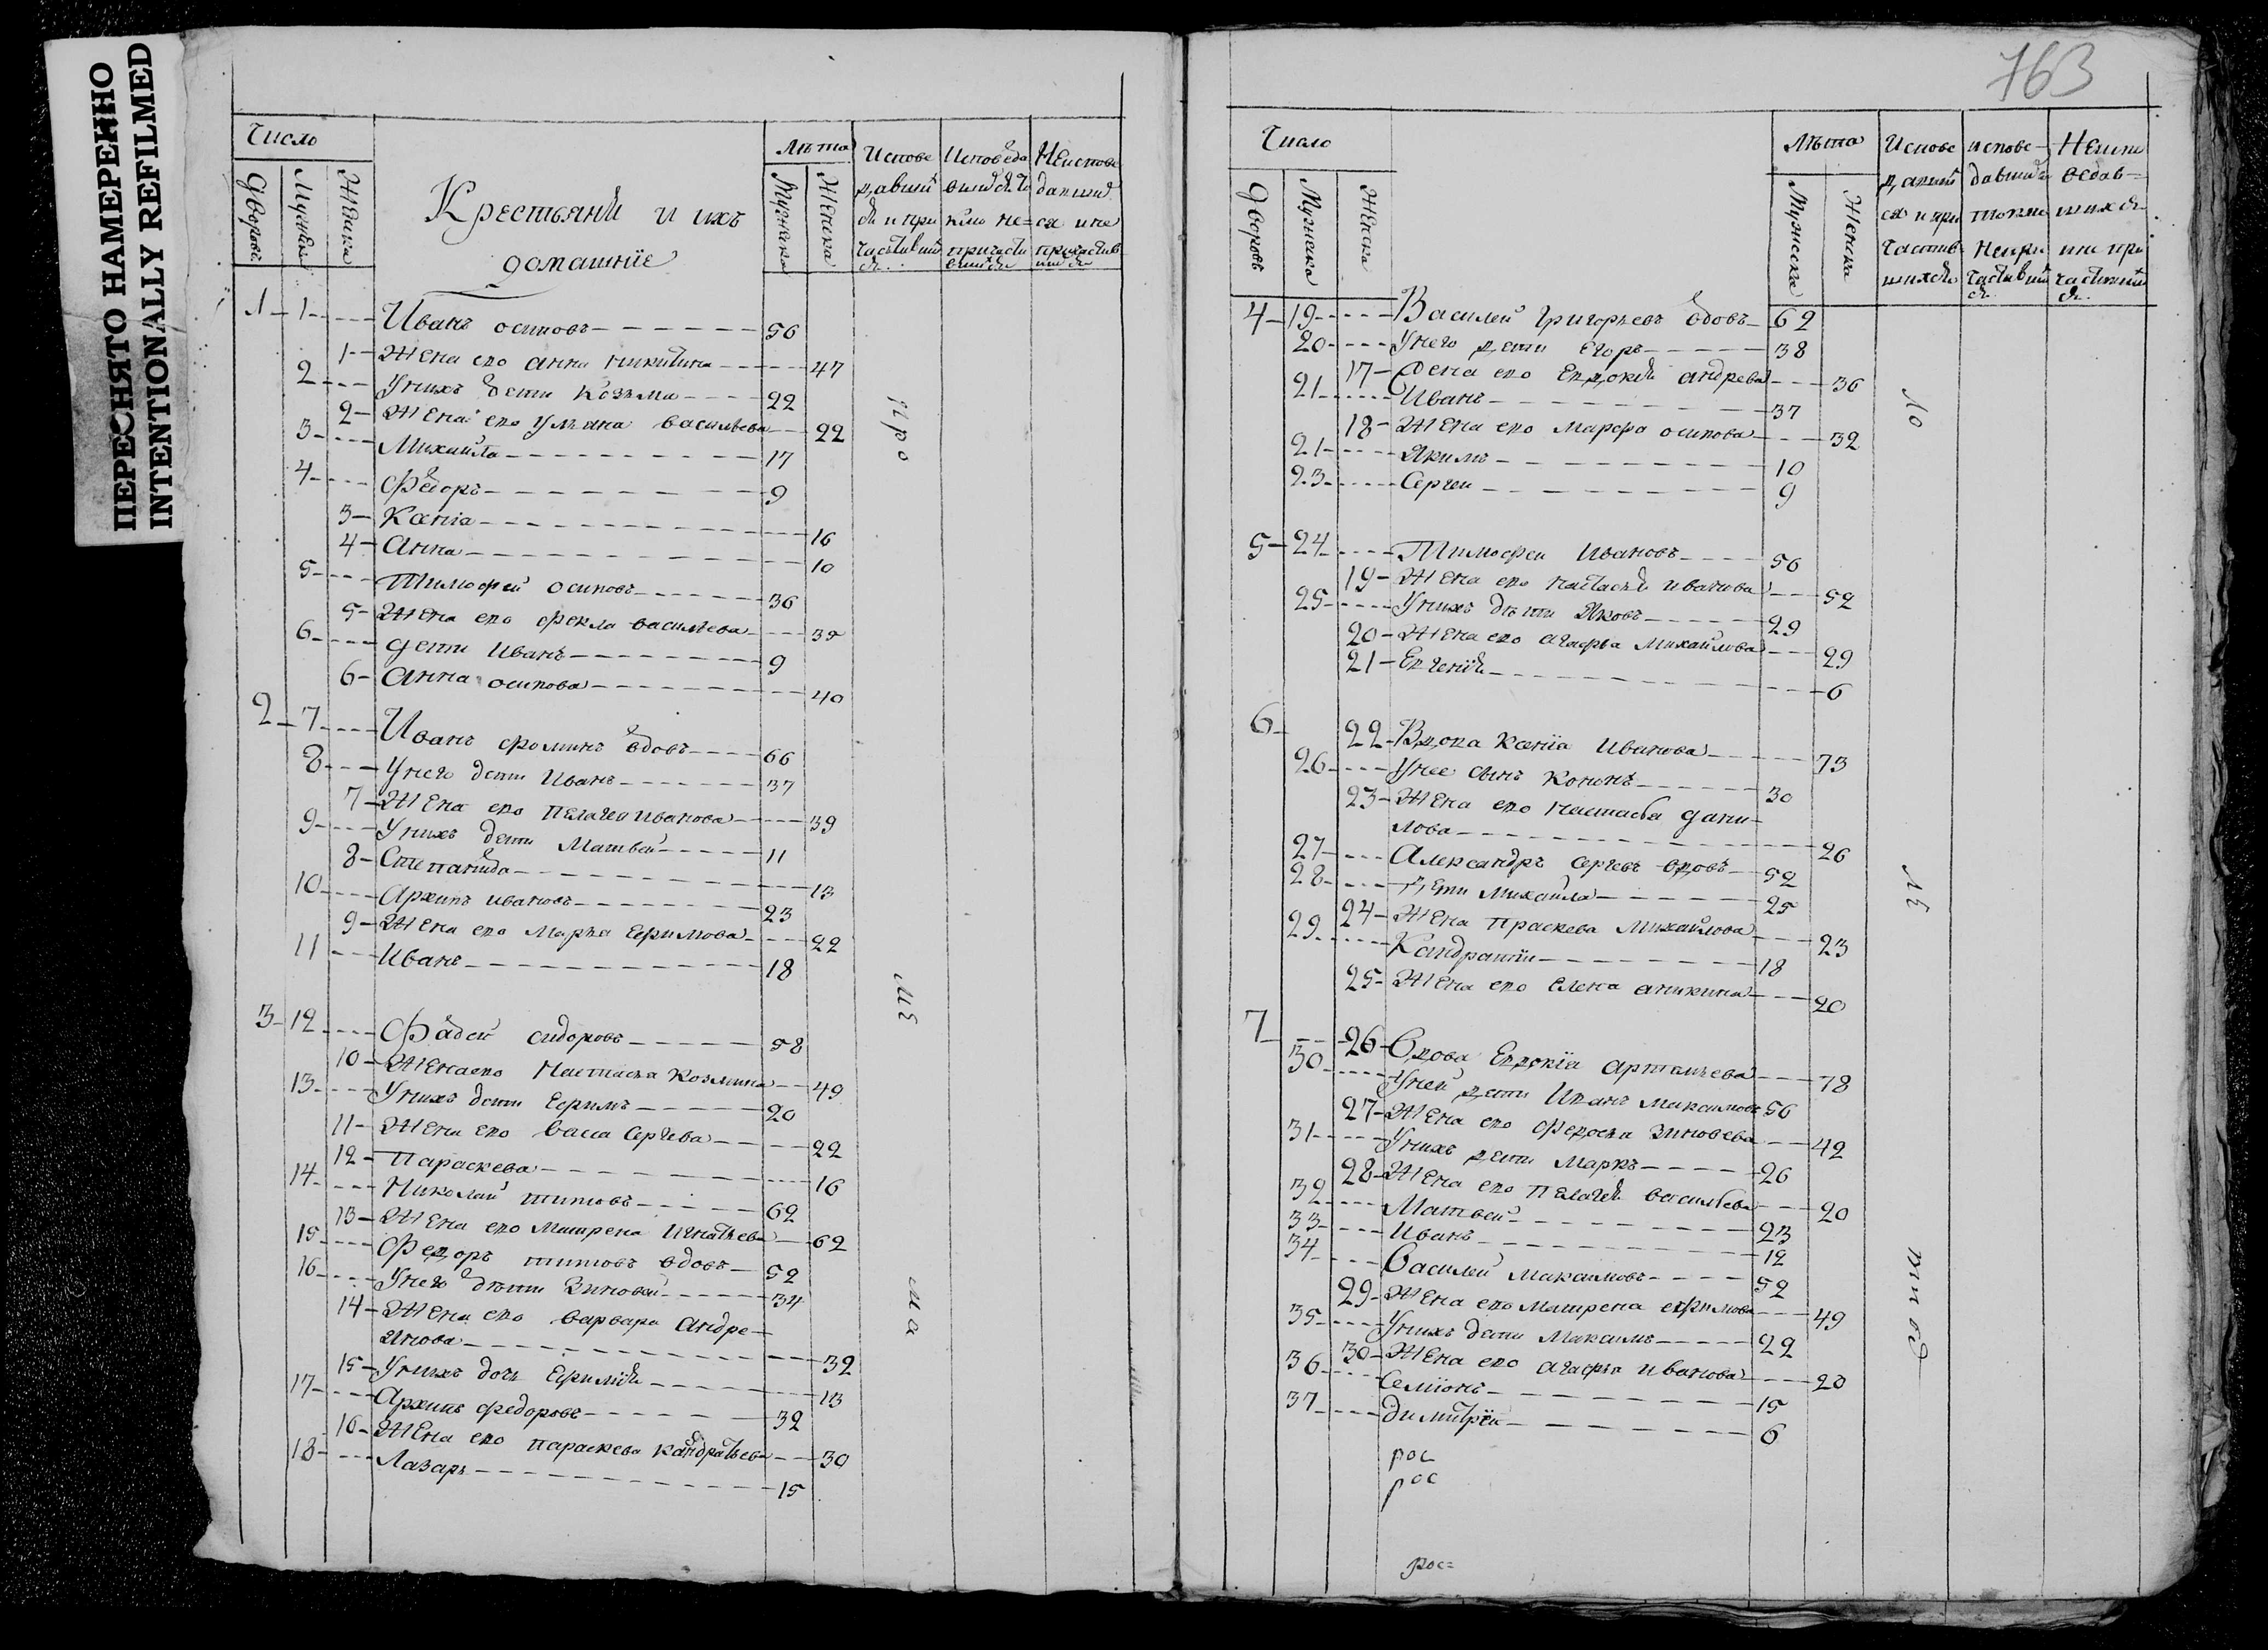 ПЕРЕСНЯТО НАМЕРЕННО
INTENTIONALLY REFILMED
Число
Дворовъ
Мужеска
Женска
Крестьяни и ихъ
домашніе
Лѣта
Мужеска
Женска
Испове
давши
ся и при
частивши
ся
Исповеда
вшися то
кмо не=
причасти
вшися
Неиспове
давши
ся и не
причастив
шися
1 1 Иванъ осиповъ 56
1 Жена ево анна никитина 47
2 Унихъ дети Козьма 22
2 Жена ево ульяна васильева 22
3 Михайла 17
4 Федоръ 9
3 Ксеніа 16
4 Анна 10
5 Тимофей осиповъ 36
5 Жена ево фекла васильева 35
6 дети Иванъ 9
6 Анна осипова 40
2 7 Иванъ фоминъ вдовъ 66
8 Унего дети Иванъ 37
7 Жена ево Пелагеа Иванова 39
9 Унихъ дети Матвей 11
8 Степанида 13
10 Архипъ ивановъ 23
9 Жена ево Марья Ефимова 22
11 Иванъ 18
3 12 Фадей сидоровъ 58
10 Жена ево Настасья Козмина 49
13 Унихъ дети Ефимъ 20
11 Жена ево васса Сергева 22
12 Параскева 16
14 Николай титовъ 62
13 Жена ево Матрена Игнатьева 62
15 Федоръ титовъ вдовъ 52
16 Унего дѣти Зиновей 34
14 Жена ево варвара андре-
янова 32
15 Унихъ дочь Ефимія 13
17 Архипъ федоровъ 32
16 Жена ево параскева кандратьева 30
18 Лазарь 15
про
мѣ
ма
763
Число
Дворовъ
Мужеска
Женска
Лѣта
Мужеска
Женска
Испове
давши
ся и при
частив-
шихся
испове-
давшися
токмо
непри
частивши
ся
Неиспо
ведав=
шихся
ни при
частивши
ся
4 19 Василей Григорьевъ вдовъ 62
20 Унего дети Егоръ 38
17 Жена ево Евдокія андрева 36
21 Иванъ 37
18 Жена ево Марфа осипова 32
21 Якимъ 10
23 Сергеи 9
5 24 Тимофеи Ивановъ 56
19 Жена ево настасья иванова 52
25 Унихъ дѣти Яковъ 29
20 Жена ево агафья Михайлова 29
21 Евгенія 6
6 22 Вдова Ксенія Иванова 73
26 Унее сынъ Кононъ 30
23 Жена ево Настасья дани-
лова 26
27 Александръ сергевъ вдовъ 52
28 дети Михайла 25
24 Жена Праскева Михайлова 23
29 Кандратіи 18
25 Жена ево елена аникина 20
7 26 Вдова Евдокіа Артамьева 78
30 Уней дети Иванъ макаимовъ 56
27 Жена ево Федосья Зиновева 42
31 Унихъ дети Маркъ 26
28 Жена ево Пелагея васильева 20
32 Матвей 23
33 Иванъ 12
34 Василей макаимовъ 52
29 Жена ево Матрена ефимова 49
35 Унихъ дети Макаимъ 22
30 Жена ево агафья иванова 20
36 Семіонъ 15
37 Димитрїи 6
рос
рос
рос=